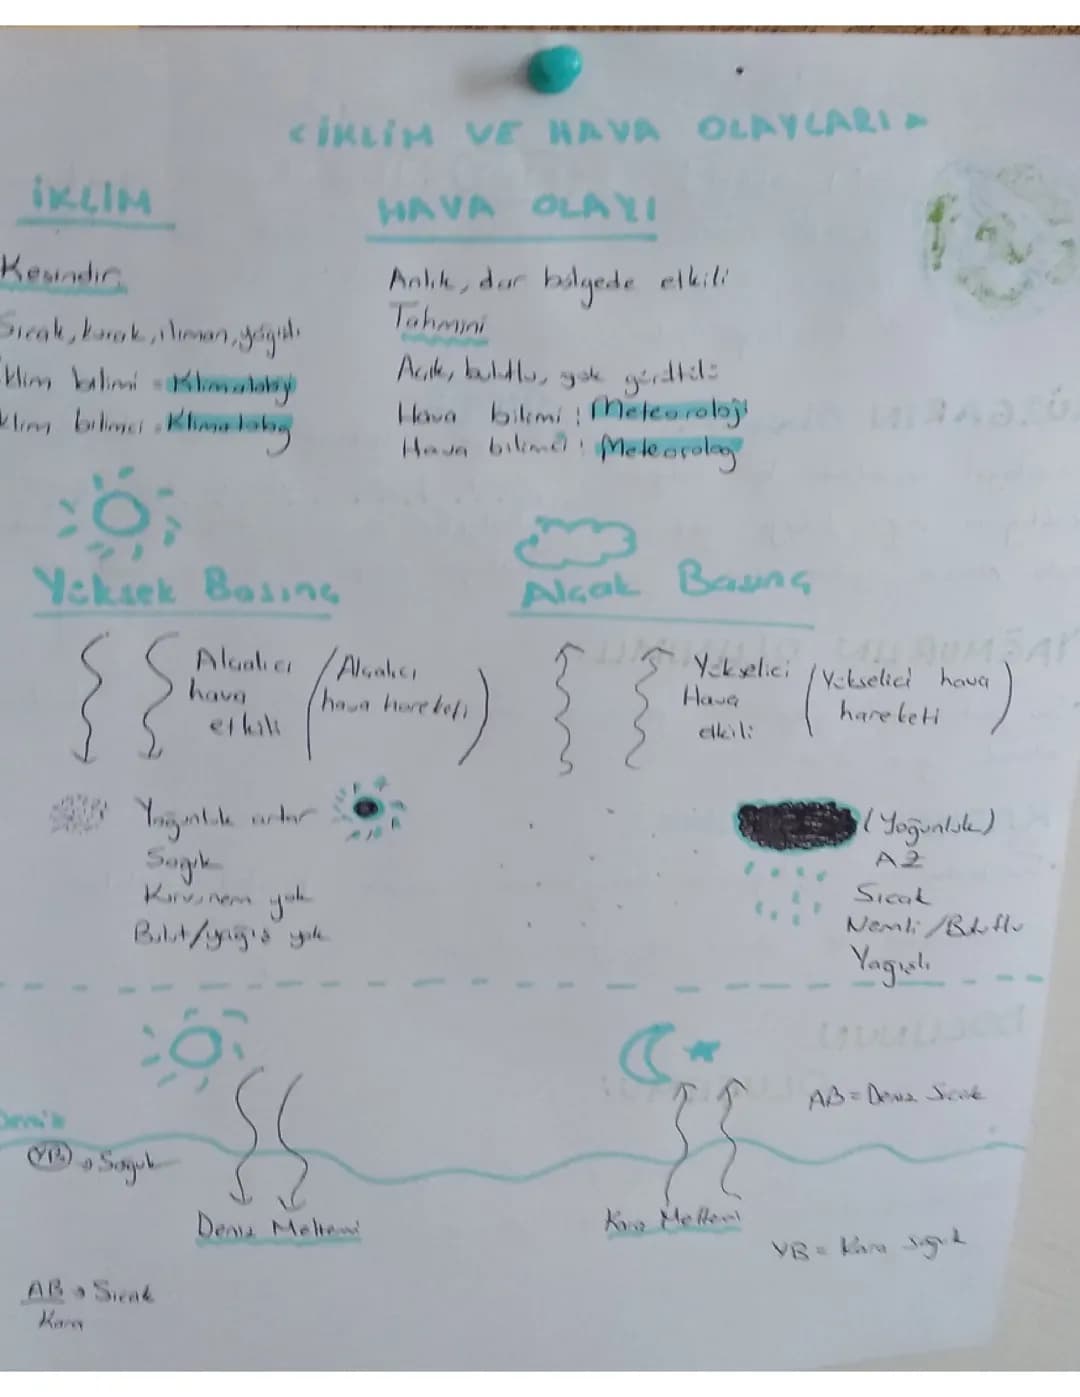 <İKLİM VE HAVA OLAYLARI>
İKLİM
Kesindir
Sıcak, kurak, ılıman, yağışlı
klim bilimi = Klimatoloji
klim bilimci = Klimatolog
HAVA OLAYI
Anlık, dar bölgede etkili
Tahmini
Açık, bulutlu, gök gürültülü
Hava bilimi : Meteoroloji
Hava bilimci : Meteorolog
Yüksek Basınç
Alçalıcı
hava
etkili
(Alçalıcı
hava hareketi)
Yoğunluk artar
Soğuk
Kuru, nem yok
Bulut/yağış yok
Alçak Basınç
Yükselici
Hava
etkili
(Yükselici hava
hareketi)
(Yoğunluk)
AZ
Sıcak
Nemli/Bulutlu
Yağışlı
Deniz
YB → Soğuk
Deniz Meltemi
AB → Sıcak
Kara
AB = Deniz Sıcak
Kara Meltemi
YB = Kara soğuk